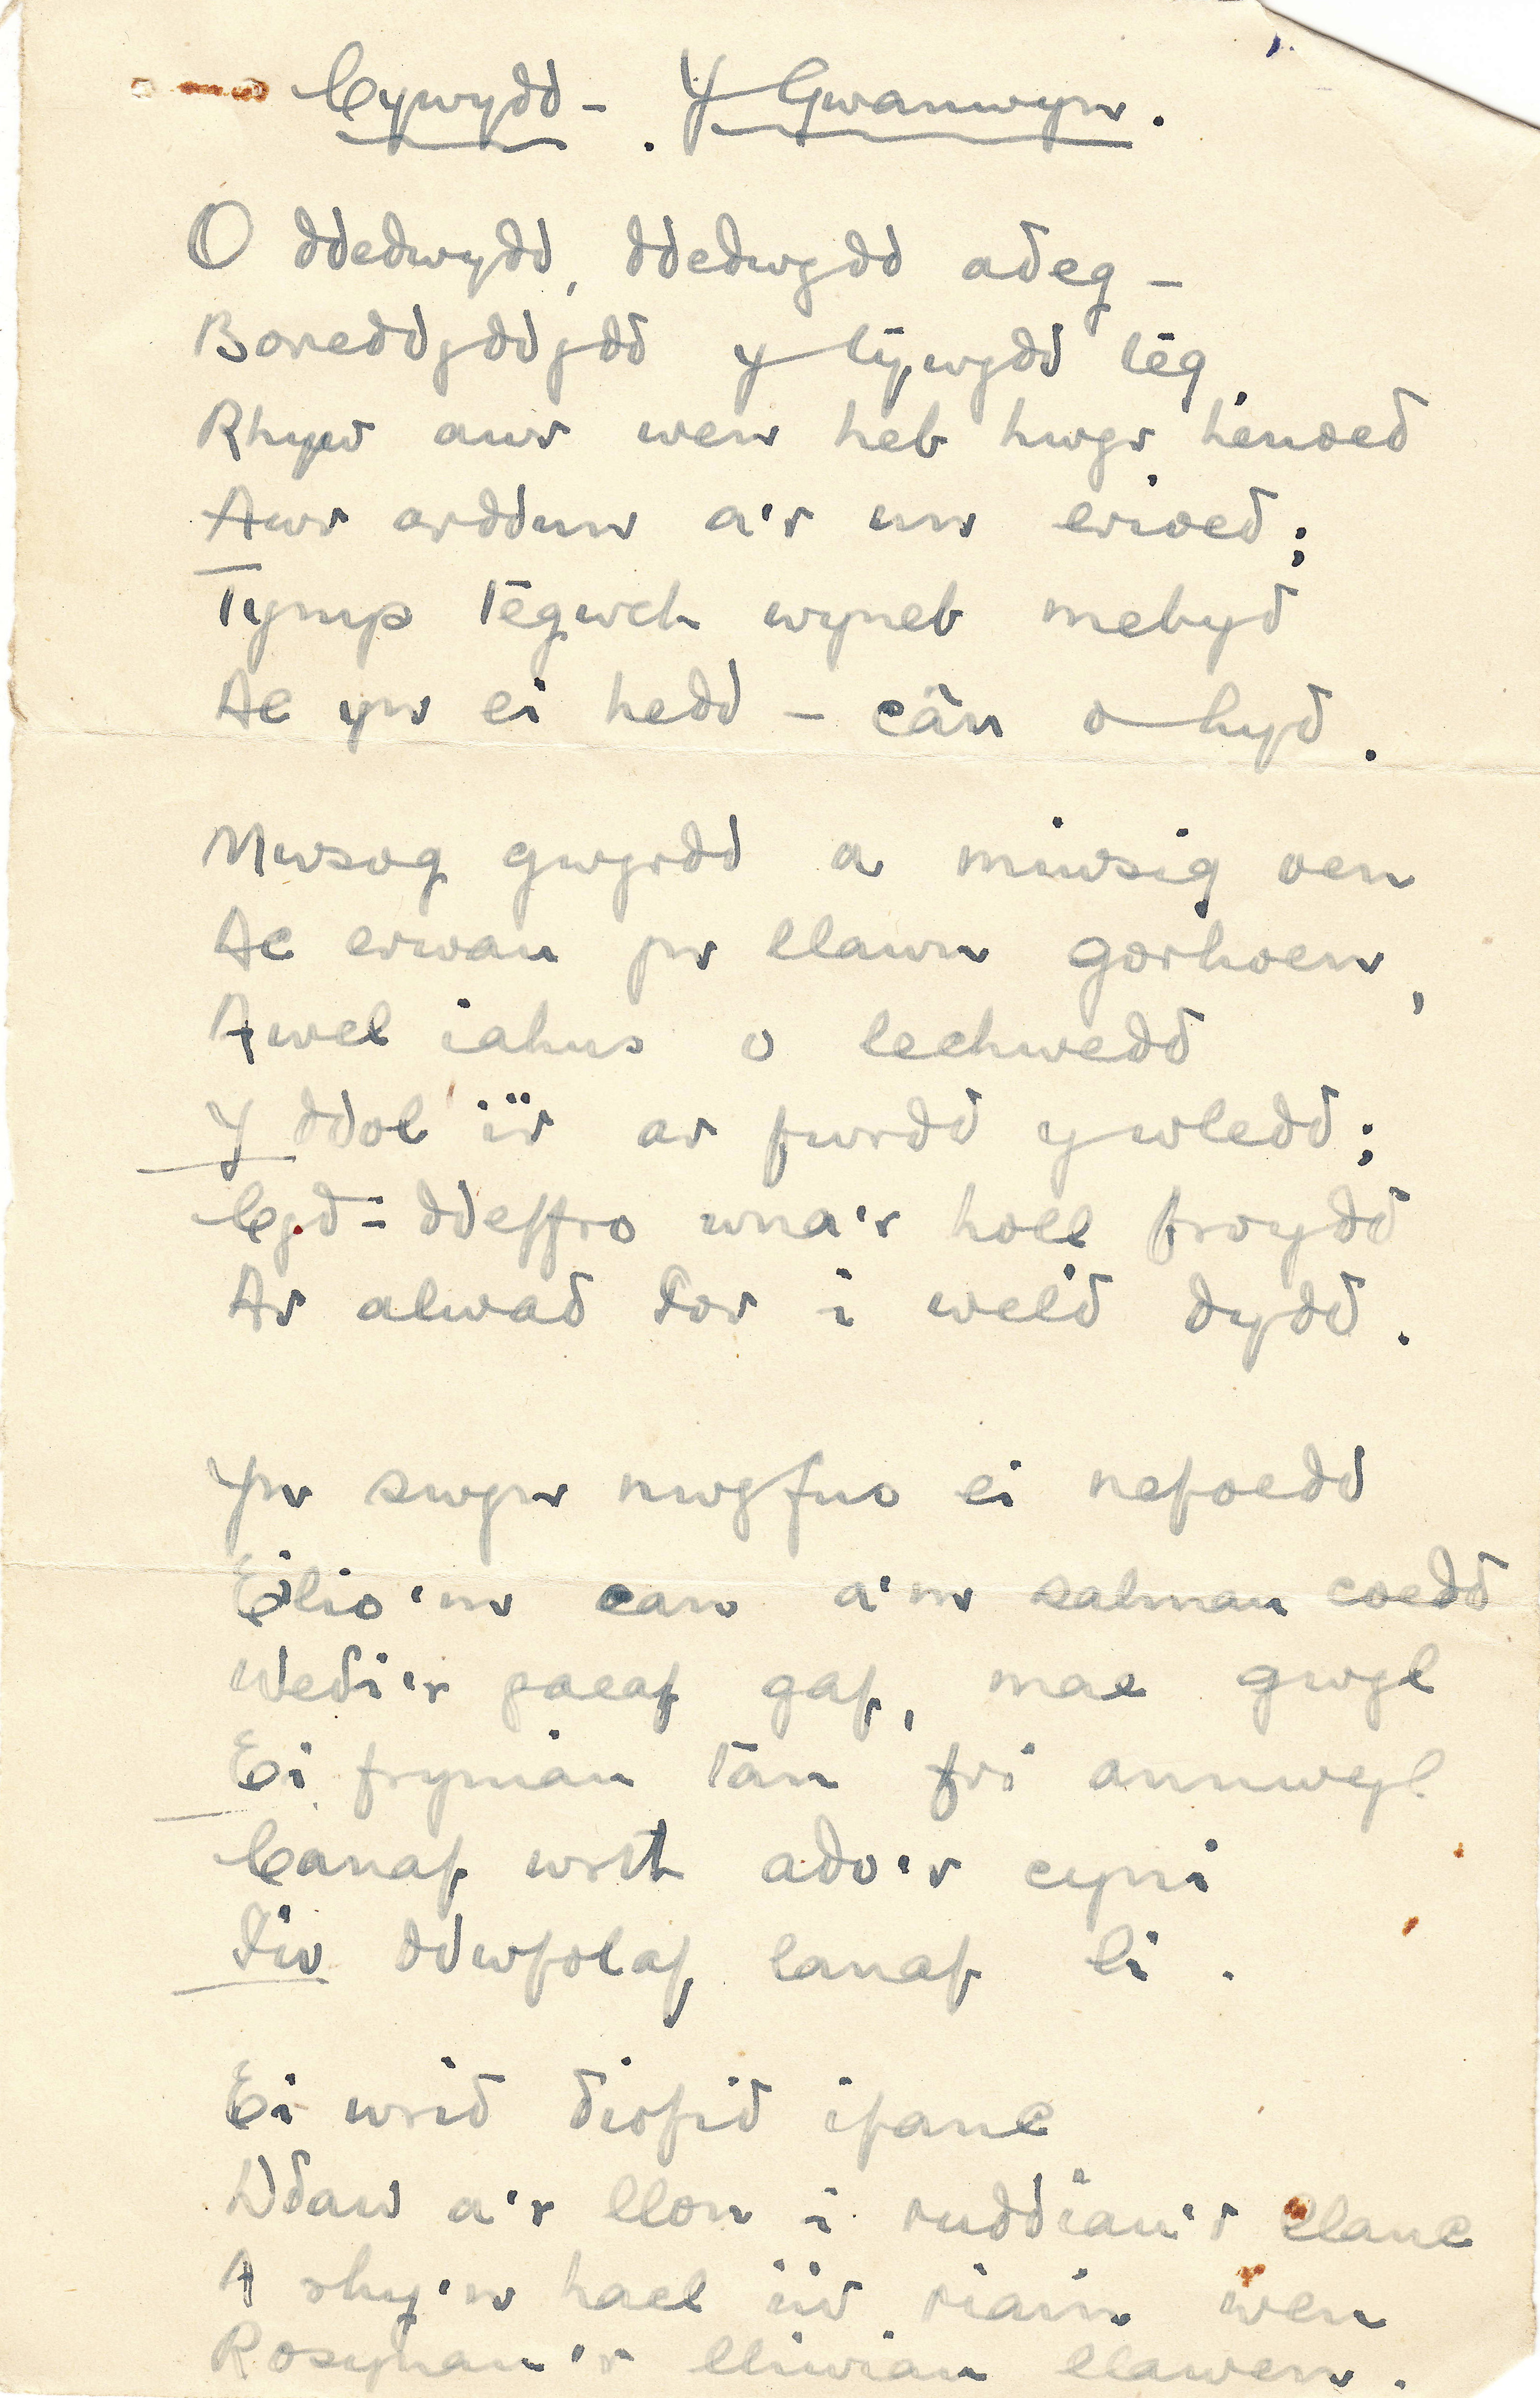 Cywydd - Y Gwanwyn.
O ddedwydd, ddedwydd adeg -
Boreddydd y tywydd têg,
Rhyw awr wen heb hwyr, henoed
Awr arddun a'r un erioed;
Tymp tegwch wyneb mebyd
Ac yn ei hedd - cân o hyd.
Mwsog gwyrdd a miwsig oen
Ac erwau yn llawn gorhoen,
Awel iahus o lechwedd
Y ddol ir ar fwrdd y wledd;
Cyd-ddeffro wna'r holl froydd
Ar alwad Iôr i weld dydd.
Yn swyn nwyfus ei nefoedd
Eilio'm can a'm salmau coedd
Wedi'r gaeaf gaf, mae gwyl
Ei frymiau tân fri annwyl
Canaf wrth ado'r cyni
Iôr ddwyfolaf lanaf li.
Ei wrid diofid ifanc
Ddaw a'r llon i ruddiau'r llanc
A rhy'n hael i'w riain wen
Rosynau'r lliwiau llawen.